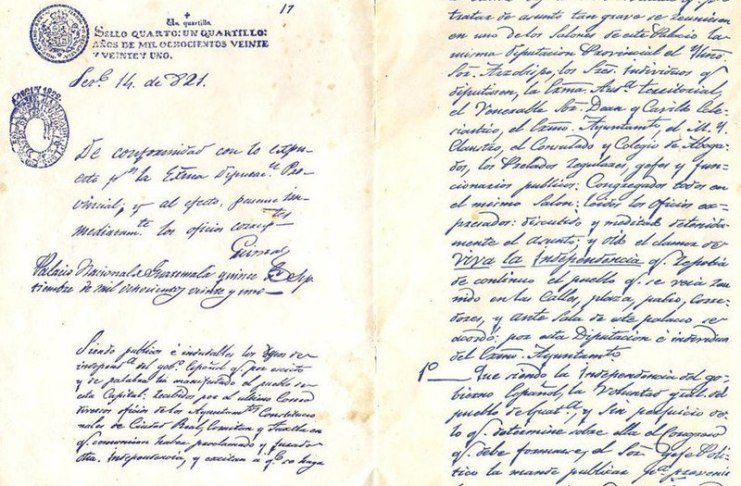 17
Un quartillo
SELLO QUARTO: UN QUARTILLO:
AÑOS DE MIL OCHOCIENTOS VEINTE
Y VEINTE Y UNO.
Sere. 14. de 821.
De conformidad con lo expu-
esto pr. la Exma Diputacn. Pro-
vincial, y al efecto, pasense in-
mediatamte. los oficios correspes
Palacio Nacional de Guatemala quince de Sep-
tiembre de mil ochocientos veinte y uno—
Siendo publicos é indudables los deseos de
independa. del gobo. Español qe. por escrito
y de palabra ha manifestado el pueblo de
esta Capital: recibidos por el ultimo Correo
diversos oficios de los Ayuntamtos. Constitucio
nales de Ciudad Real, Comitan y Tuxtla en
q. comunican haber proclamado y jurado
dha. Independencia, y excitan á q. se haga
tratar de asunto tan grave se reuniesen
en uno de los Salones de este Palacio la
misma Diputacion Provincial el Illmo.
Sor. Arzobispo, los Sres. individuos q.
diputasen, la Exma. Auda. territorial,
el Venerable Sor. Dean y Cavildo Ecle-
ciastico, el Exmo. Ayuntamto, el M. Y.
Claustro, el Consulado y Colegio de Aboga-
dos, los Prelados regulares, gefes y fun-
cionarios publicos: Congregados todos en
el mismo Salon: leidos los oficios ex-
presados: discutido y meditado detenida-
mente el asunto; y oido el clamor de
Viva la Independencia q. repetia
de continuo el pueblo q. se veia reu-
nido en las calles, plaza, patio, corre-
dores, y ante sala de este palacio se
acordó: por esta Diputacion é individuos
del Exmo. Ayuntamto.
1º— Que siendo la Independencia del go-
bierno Español, la Voluntad gral. del
pueblo de Guata. y sin perjuicio de
lo q. determine sobre ella el Congreso
q. debe formarse, el Sor. Gefe Poli-
tico la mande publicar pa. prevenir